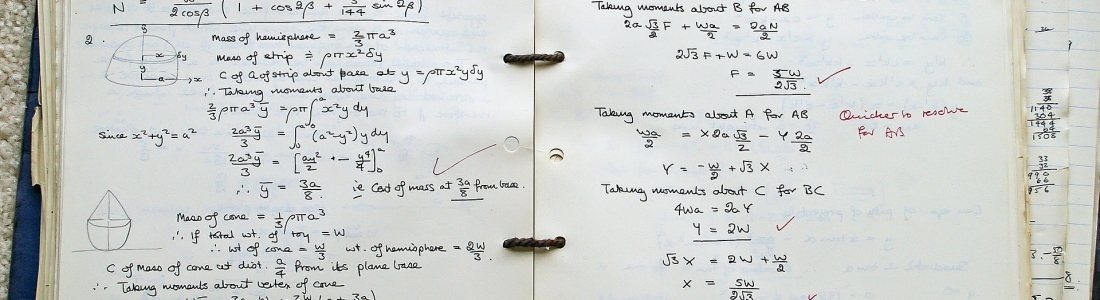 N = 2cosβ ( 1 + cos2β + 3/144 sin 2β )
2.
Mass of hemisphere = 2/3 πa³
Mass of strip ≑ ρπx²δy
C of G of strip about base at y = ρπx²yδy
∴ Taking moments about base
2/3 ρπa³ȳ = ρπ∫₀ᵃ x²y dy
since x²+y²=a² 2a³ȳ/3 = ∫₀ᵃ (a²-y²)y dy
2a³ȳ/3 = [ay²/2 + - y⁴/4]₀ᵃ
∴ ȳ = 3a/8 ie C of mass at 3a/8 from base.
Mass of cone = 1/3 ρπa³
∴ If total wt. of toy = W
∴ wt of cone = W/3 wt. of hemisphere = 2W/3.
C of Mass of cone at dist. a/4 from its plane base
∴ Taking moments about vertex of cone
Taking moments about B for AB
2a√3/2 F + Wa/2 = 2aN/2
2√3F + W = 6W
F = 5W/2√3.
Taking moments about A for AB
Wa/2 = X2a√3/2 - Y 2a/2
Y = -W/2 + √3 X
Taking moments about C for BC
4Wa = 2aY
Y = 2W
√3 X = 2W + W/2
X = 5W/2√3
Quicker to resolve
for AB
38
38
1140
304
1444
64
1508
33
32
990
66
956